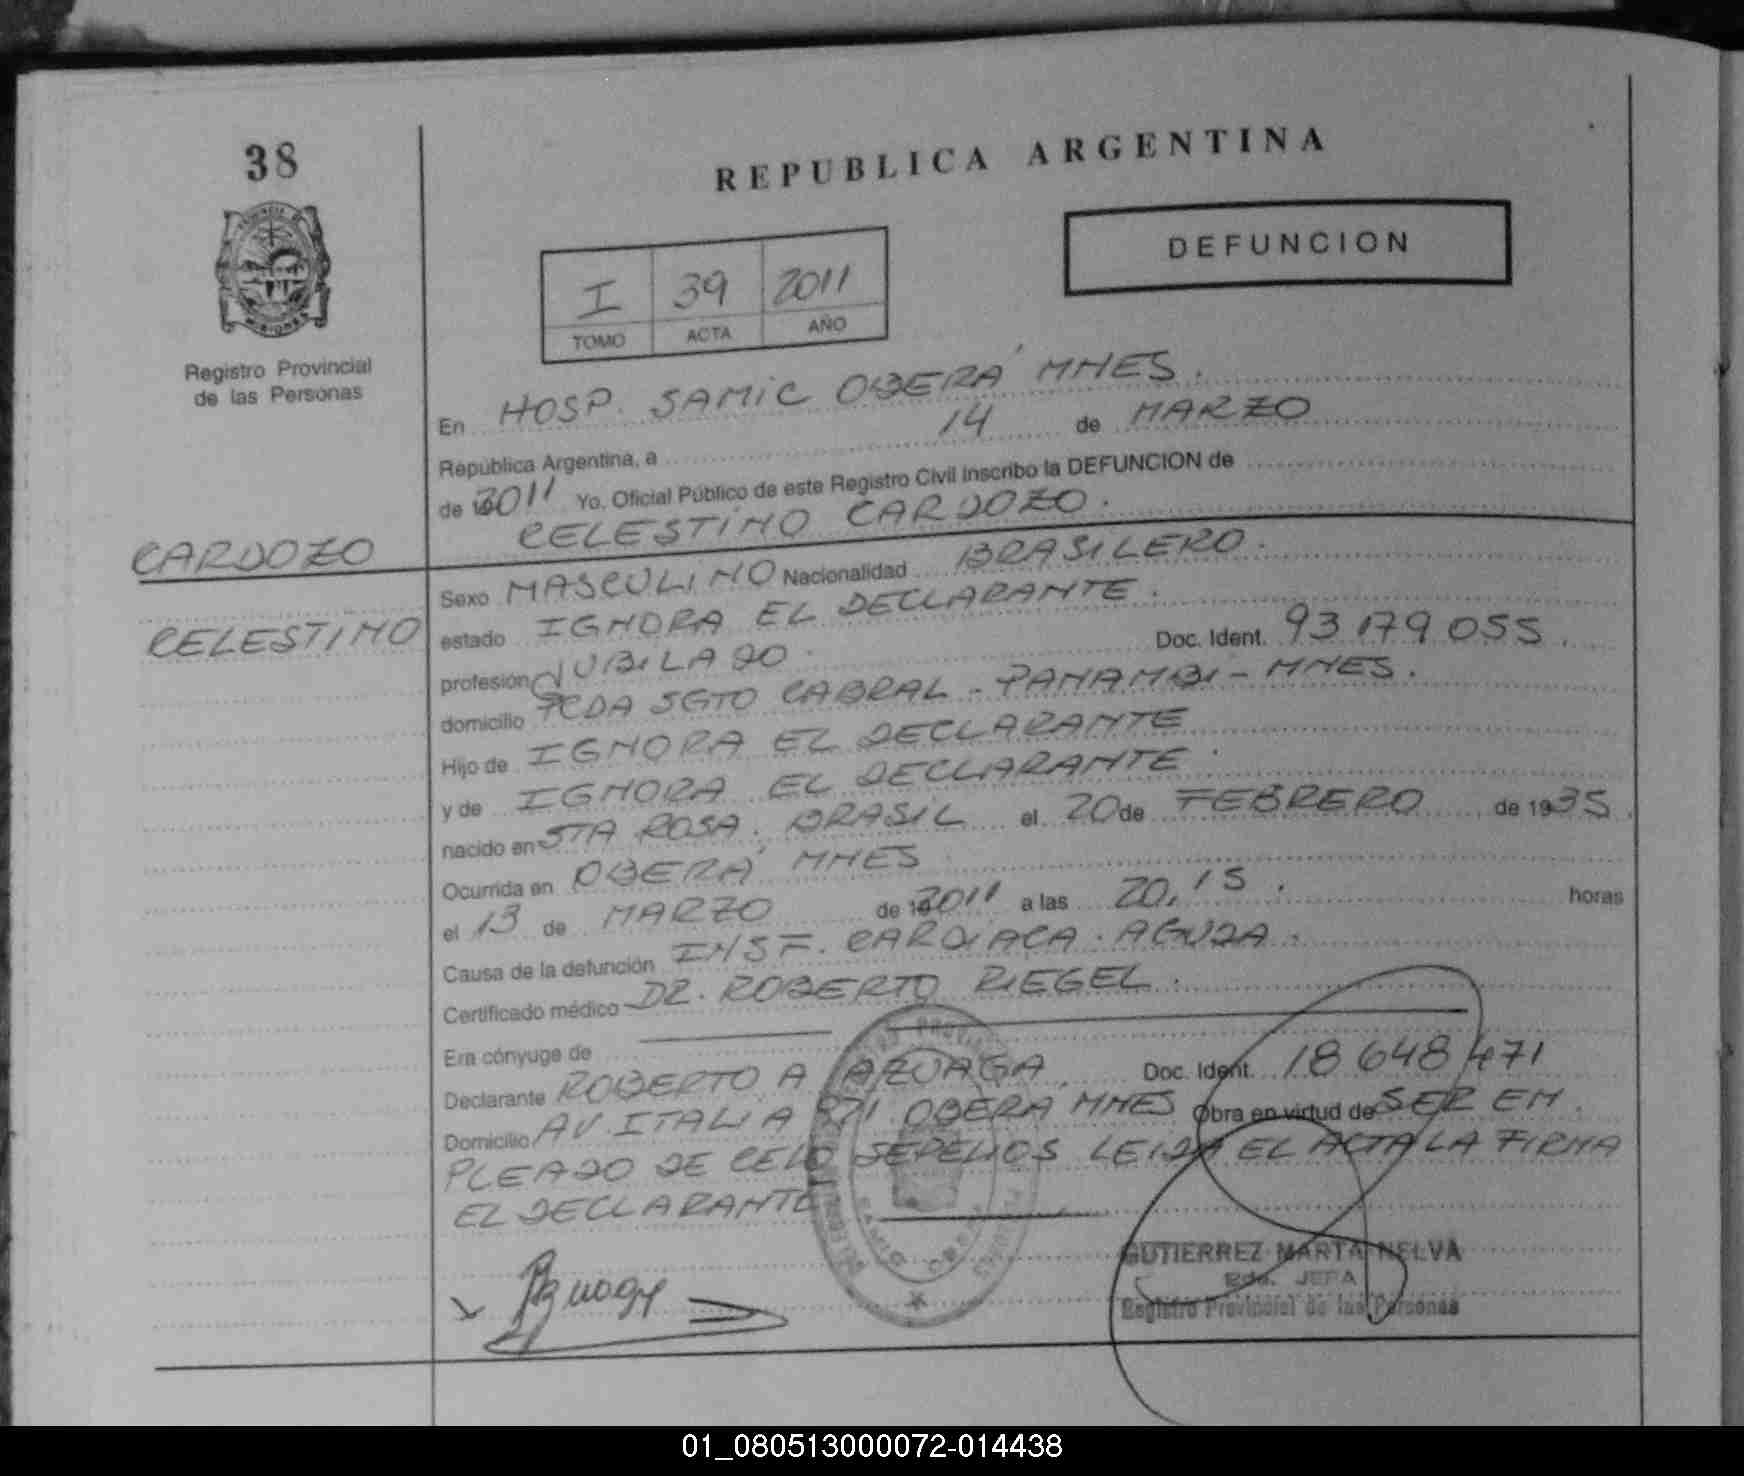 38
PROVINCIA DE
MISIONES
Registro Provincial
de las Personas
REPUBLICA ARGENTINA
DEFUNCION
I 39 2011
TOMO ACTA AÑO
En HOSP. SAMIC OBERÁ MNES.
República Argentina, a 14 de MARZO
de 2011 Yo, Oficial Público de este Registro Civil inscribo la DEFUNCION de
CELESTINO CARDOZO.
CARDOZO
CELESTINO
Sexo MASCULINO Nacionalidad BRASILERO.
estado IGNORA EL DECLARANTE.
profesión JUBILADO. Doc. Ident. 93 179 055.
domicilio PCDA SGTO CABRAL - PANAMBI - MNES.
Hijo de IGNORA EL DECLARANTE
y de IGNORA EL DECLARANTE.
nacido en STA ROSA. BRASIL el 20 de FEBRERO de 1935.
Ocurrida en OBERÁ MNES
el 13 de MARZO de 2011 a las 20,15. horas
Causa de la defunción INSF. CARDIACA. AGUDA.
Certificado médico DR. ROBERTO RIEGEL.
Era cónyuge de
Declarante ROBERTO A AZUAGA. Doc. Ident. 18 648 471
Domicilio AV. ITALIA 871 OBERA MNES Obra en virtud de SER EM
PLEADO DE CELO SEPELIOS LEIDA EL ACTA LA FIRMA
EL DECLARANTE
Azuaga
GUTIERREZ MARTA NELVA
JEFA
Registro Provincial de las Personas
01_080513000072-014438